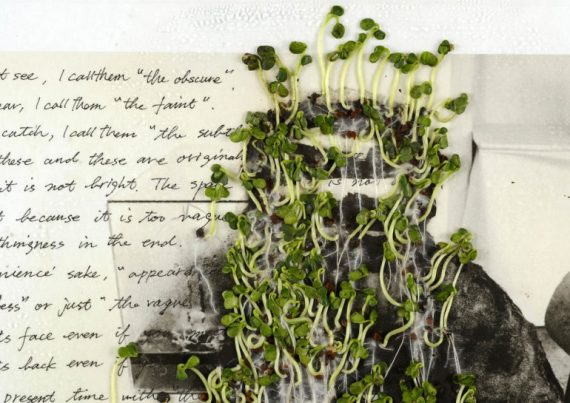 t see, I call them "the obscure".
ear, I call them "the faint".
catch, I call them "the subt
these and these are original
it is not bright. The spa is no
t because it is too vague
thingness in the end.
nience' sake, "appeara
ess" or just "the vague
ts face even if
ts back even if
present time within the